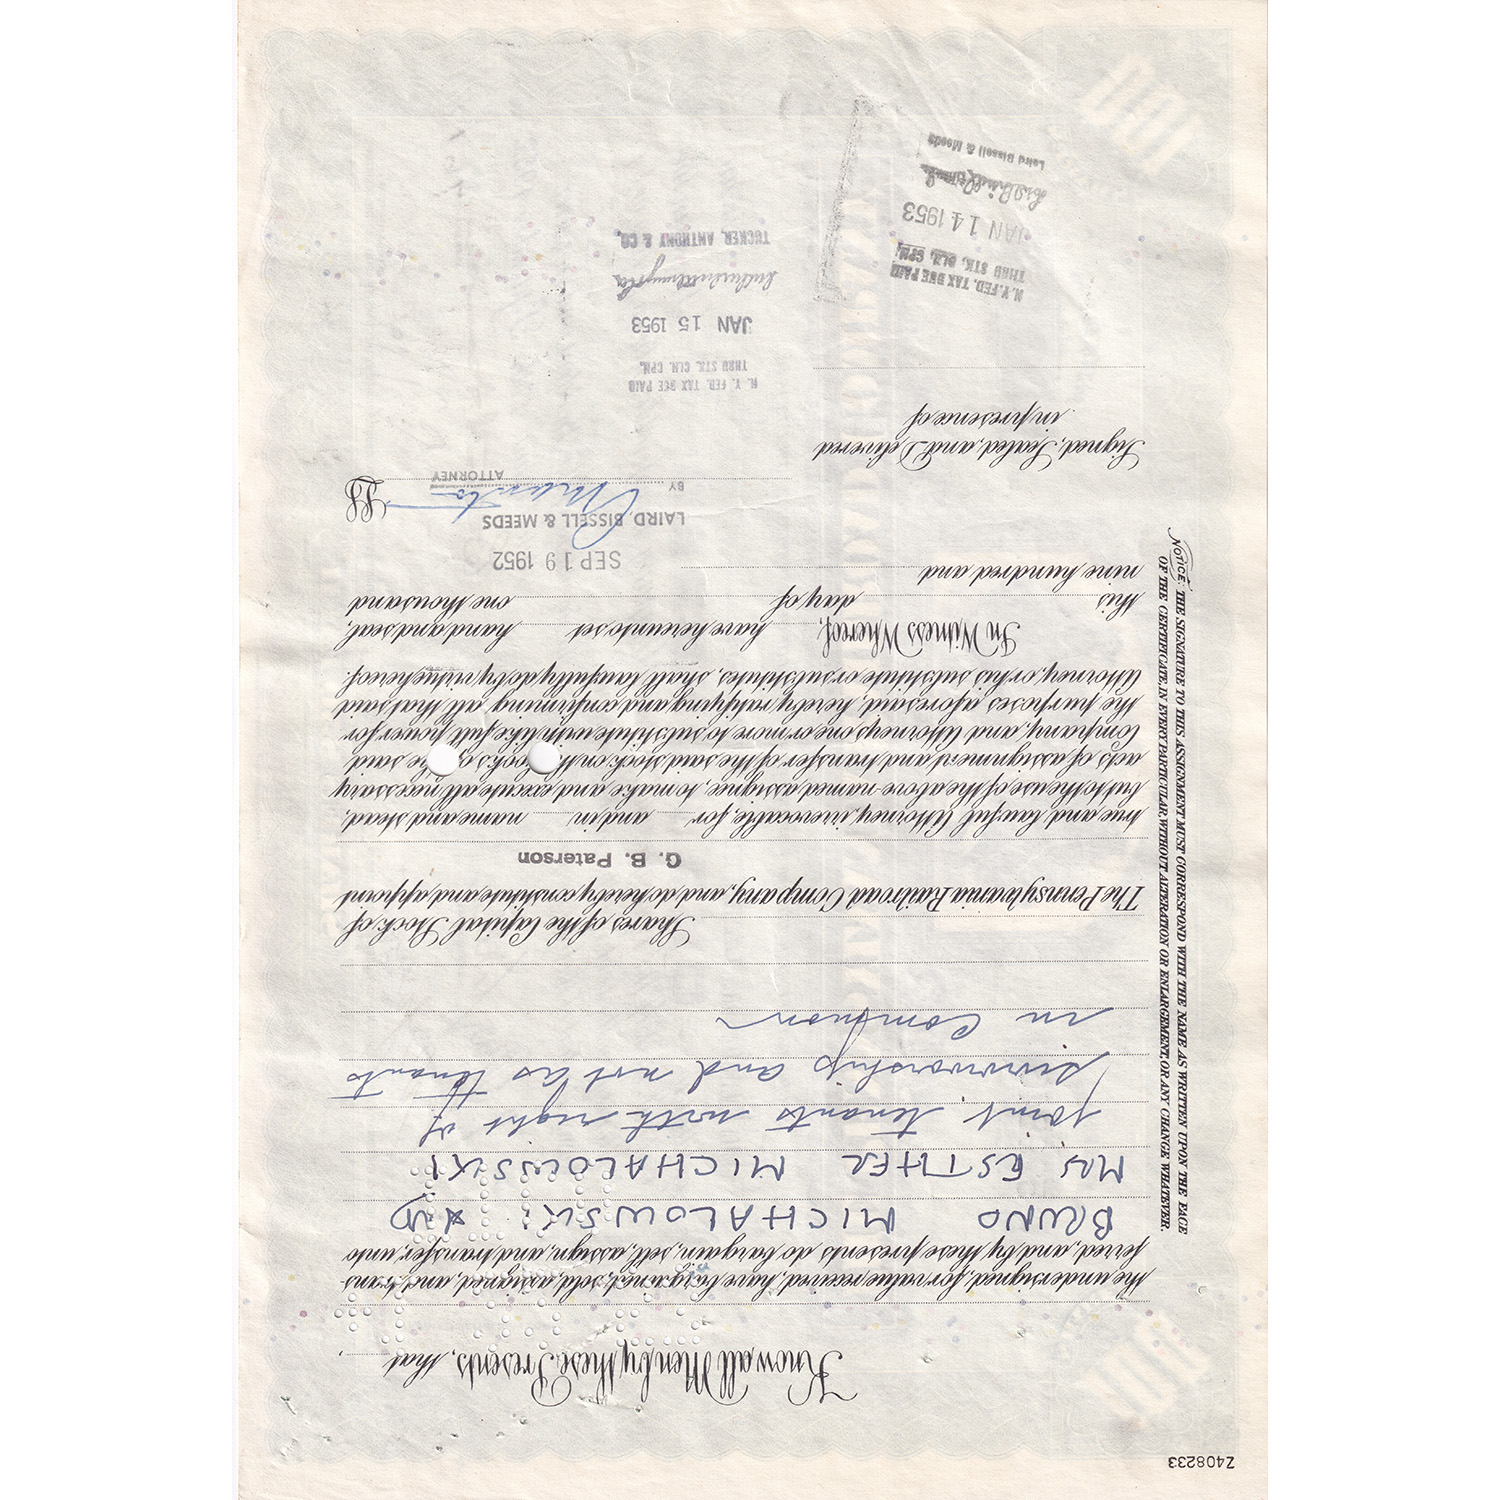 Z408233
Know all Men by these Presents, that
the undersigned, for value received, have bargained, sold, assigned, and trans
ferred, and by these presents do bargain, sell, assign, and transfer, unto
BRUNO MICHALOWSKI AND
MRS ESTHER MICHALOWSKI
joint tenants with right of
survivorship and not as tenants
in common
Shares of the Capital Stock of
The Pennsylvania Railroad Company, and do hereby constitute and appoint
G. B. Paterson
true and lawful Attorney, irrevocable, for and in name and stead,
but to the use of the above-named assignee, to make and execute all necessary
acts of assignment and transfer of the said stock on the books of the said
Company, and Attorneys one or more to substitute with like full power for
the purposes aforesaid, hereby ratifying and confirming all that said
Attorney, or his substitute or substitutes, shall lawfully do by virtue hereof.
In Witness Whereof, have hereunto set hand and seal,
this day of one thousand
nine hundred and
SEP 19 1952
LAIRD, BISSELL & MEEDS
BY
ATTORNEY
LS
Signed, Sealed, and Delivered
in presence of
N. Y. FED. TAX DUE PAID
THRU STK. CLR. CPN.
JAN 15 1953
TUCKER, ANTHONY & CO.
N. Y. FED. TAX DUE PAID
THRU STK. CLR. CPN.
JAN 14 1953
Laird Bissell & Meeds
NOTICE: THE SIGNATURE TO THIS ASSIGNMENT MUST CORRESPOND WITH THE NAME AS WRITTEN UPON THE FACE
OF THE CERTIFICATE, IN EVERY PARTICULAR, WITHOUT ALTERATION OR ENLARGEMENT, OR ANY CHANGE WHATEVER.